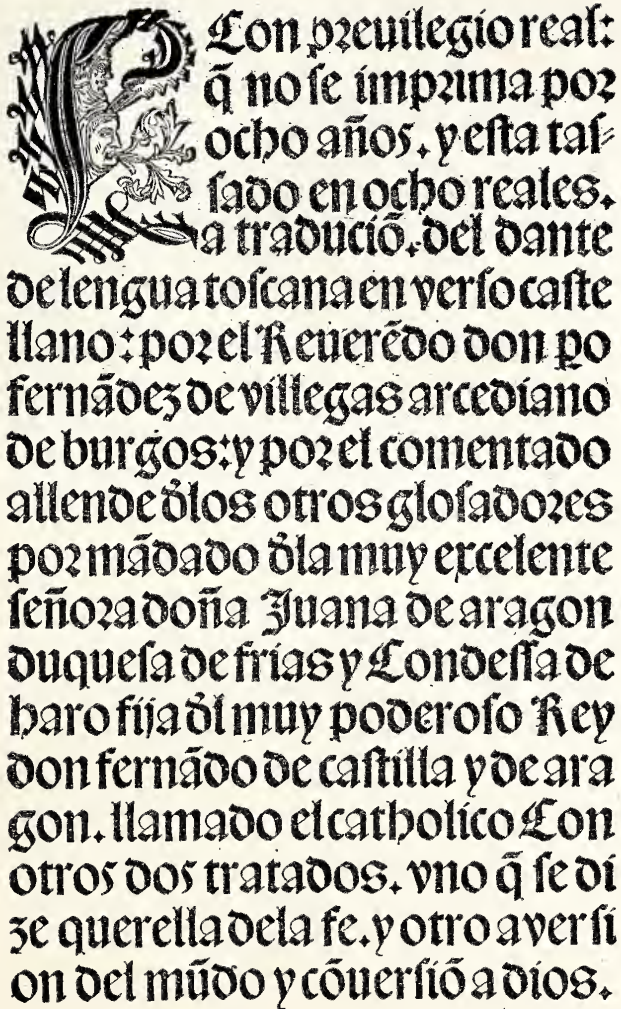 Con preuilegio real:
q̃ no se imprima por
ocho años. y esta tas⸗
sado en ocho reales.
La traduciõ. del dante
de lengua toscana en verso caste
llano: por el Reuerẽdo don p̱o
fernãdez de villegas arcediano
de burgos: y por el comentado
allende d̓los otros glosadores
por mãdado d̓la muy excelente
señora doña Juana de aragon
duquesa de frias y Condessa de
haro fija d̓l muy poderoso Rey
don fernãdo de castilla y de ara
gon. llamado el catholico Con
otros dos tratados. vno q̃ se di
ze querella dela fe. y otro aversi
on del mũdo y cõuersiõ a dios.